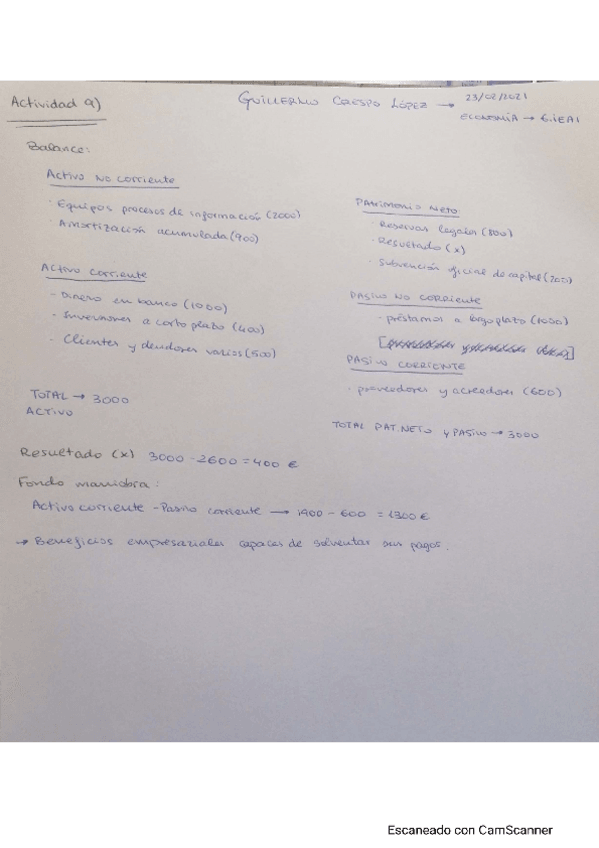 Actividad a)
GUILLERMO CRESPO LÓPEZ → 23/02/2021
ECONOMÍA → G.IEAI
Balance:
Activo No corriente
· Equipos procesos de información (2000)
· Amortización acumulada (900)
Activo corriente
- Dinero en banco (1000)
- Inversiones a corto plazo (400)
- Clientes y deudores varios (500)
TOTAL → 3000
ACTIVO
PATRIMONIO NETO
· Reservas legales (800)
· Resultado (x)
· Subvención oficial de capital (200)
PASIVO NO CORRIENTE
· préstamos a largo plazo (1000)
PASIVO CORRIENTE
· proveedores y acreedores (600)
TOTAL PAT. NETO y PASIVO → 3000
Resultado (x) 3000 - 2600 = 400 €
Fondo maniobra:
Activo corriente - Pasivo corriente → 1900 - 600 = 1300 €
→ Beneficios empresariales capaces de solventar sus pagos.
Escaneado con CamScanner